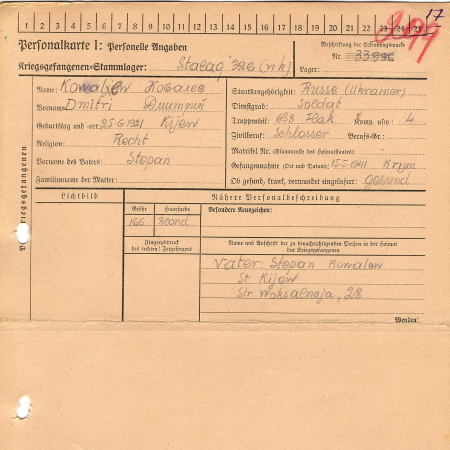 1 2 3 4 5 6 7 8 9 10 11 12 13 14 15 16 17 18 19 20 21 22 23 24 25
17
Personalkarte I: Personelle Angaben
Kriegsgefangenen-Stammlager: Stalag 326 (VI K)
Beschriftung der Erkennungsmarke
Nr. 33996
Lager:
des Kriegsgefangenen
Name: Kowaljew Ковалев
Vorname: Dmitri Дмитрий
Geburtstag und -ort: 25.6.1921 Kijew
Religion: Recht
Vorname des Vaters: Stepan
Familienname der Mutter:
Staatsangehörigkeit: Russe (Ukrainer)
Dienstgrad: Soldat
Truppenteil: 638 Flak Komp. usw.: 4
Zivilberuf: Schlosser Berufs-Gr.:
Matrikel Nr. (Stammrolle des Heimatstaates):
Gefangennahme (Ort und Datum): 15.5.1941 Krym
Ob gesund, krank, verwundet eingeliefert: gesund
Lichtbild
Nähere Personalbeschreibung
Größe Haarfarbe
166 Blond
Besondere Kennzeichen:
Fingerabdruck
des rechten! Zeigefingers
Name und Anschrift der zu benachrichtigenden Person in der Heimat
des Kriegsgefangenen
Vater: Stepan Kowalew
St. Kijew
Str. Woksalnaja, 28
Wenden!